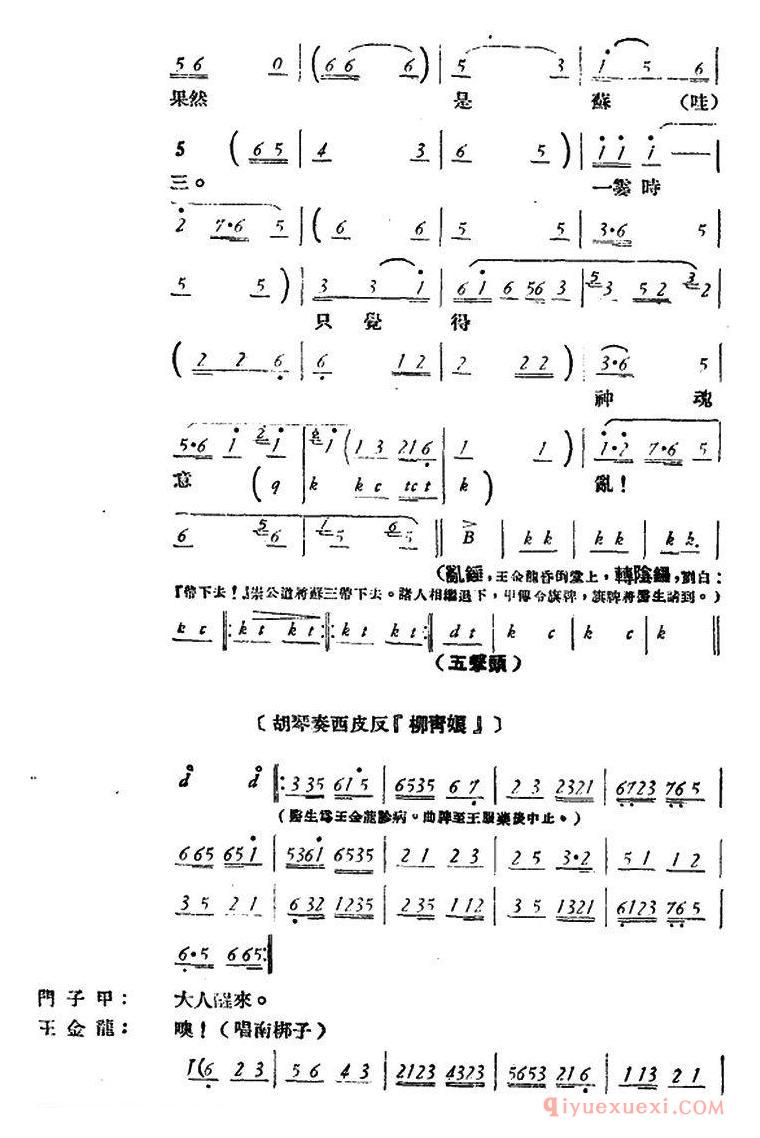 5 6 0 | ( 6 6 6 | 5 3 | i 5 6 |
果然 是 蘇 (哇)
5 ( 6 5 | 4 3 | 6 5 ) | i i i — |
三。 一霎時
2 7·6 5 | ( 6 6 | 5 5 | 3·6 5 |
5 5 ) | 3 3 i | 6 i 6 56 3 | 5 3 5 2 3 2 |
只覺 得
( 2 2 6 | 6 1 2 | 2 2 2 ) | 3·6 5 |
神 魂
5·6 i 2 i | i ( 1 3 216 | 1 1 ) | i·2 7·6 5 |
意 ( q | k k c tct | k ) 亂!
6 5 6 | 1 5 6 5 || B | k k | k k | k k. |
(亂錘,王金龍昏倒堂上,轉陰鑼,劉白:
『帶下去!』崇公道將蘇三帶下去。諸人相繼退下,甲傳令旗牌,旗牌將醫生請到。)
k c ||: k t k t :||: k t k t :|| d t | k c | k c | k ||
(五擊頭)
〔胡琴奏西皮反『柳靑娘』〕
d d ||: 3 35 61 5 | 6535 6 7 | 2 3 2321 | 6723 765 |
(醫生爲王金龍診病。曲牌至王服藥後中止。)
665 651 | 5361 6535 | 2 1 2 3 | 2 5 3·2 | 5 1 1 2 |
3 5 2 1 | 6 32 1235 | 2 35 1 12 | 3 5 1321 | 6123 765 |
6·5 665 :||
門子甲: 大人醒來。
王金龍: 噢!(唱南梆子)
サ(6 2 3 | 5 6 4 3 | 2123 4323 | 5653 216 | 1 13 2 1 |
qiyuexuexi.com